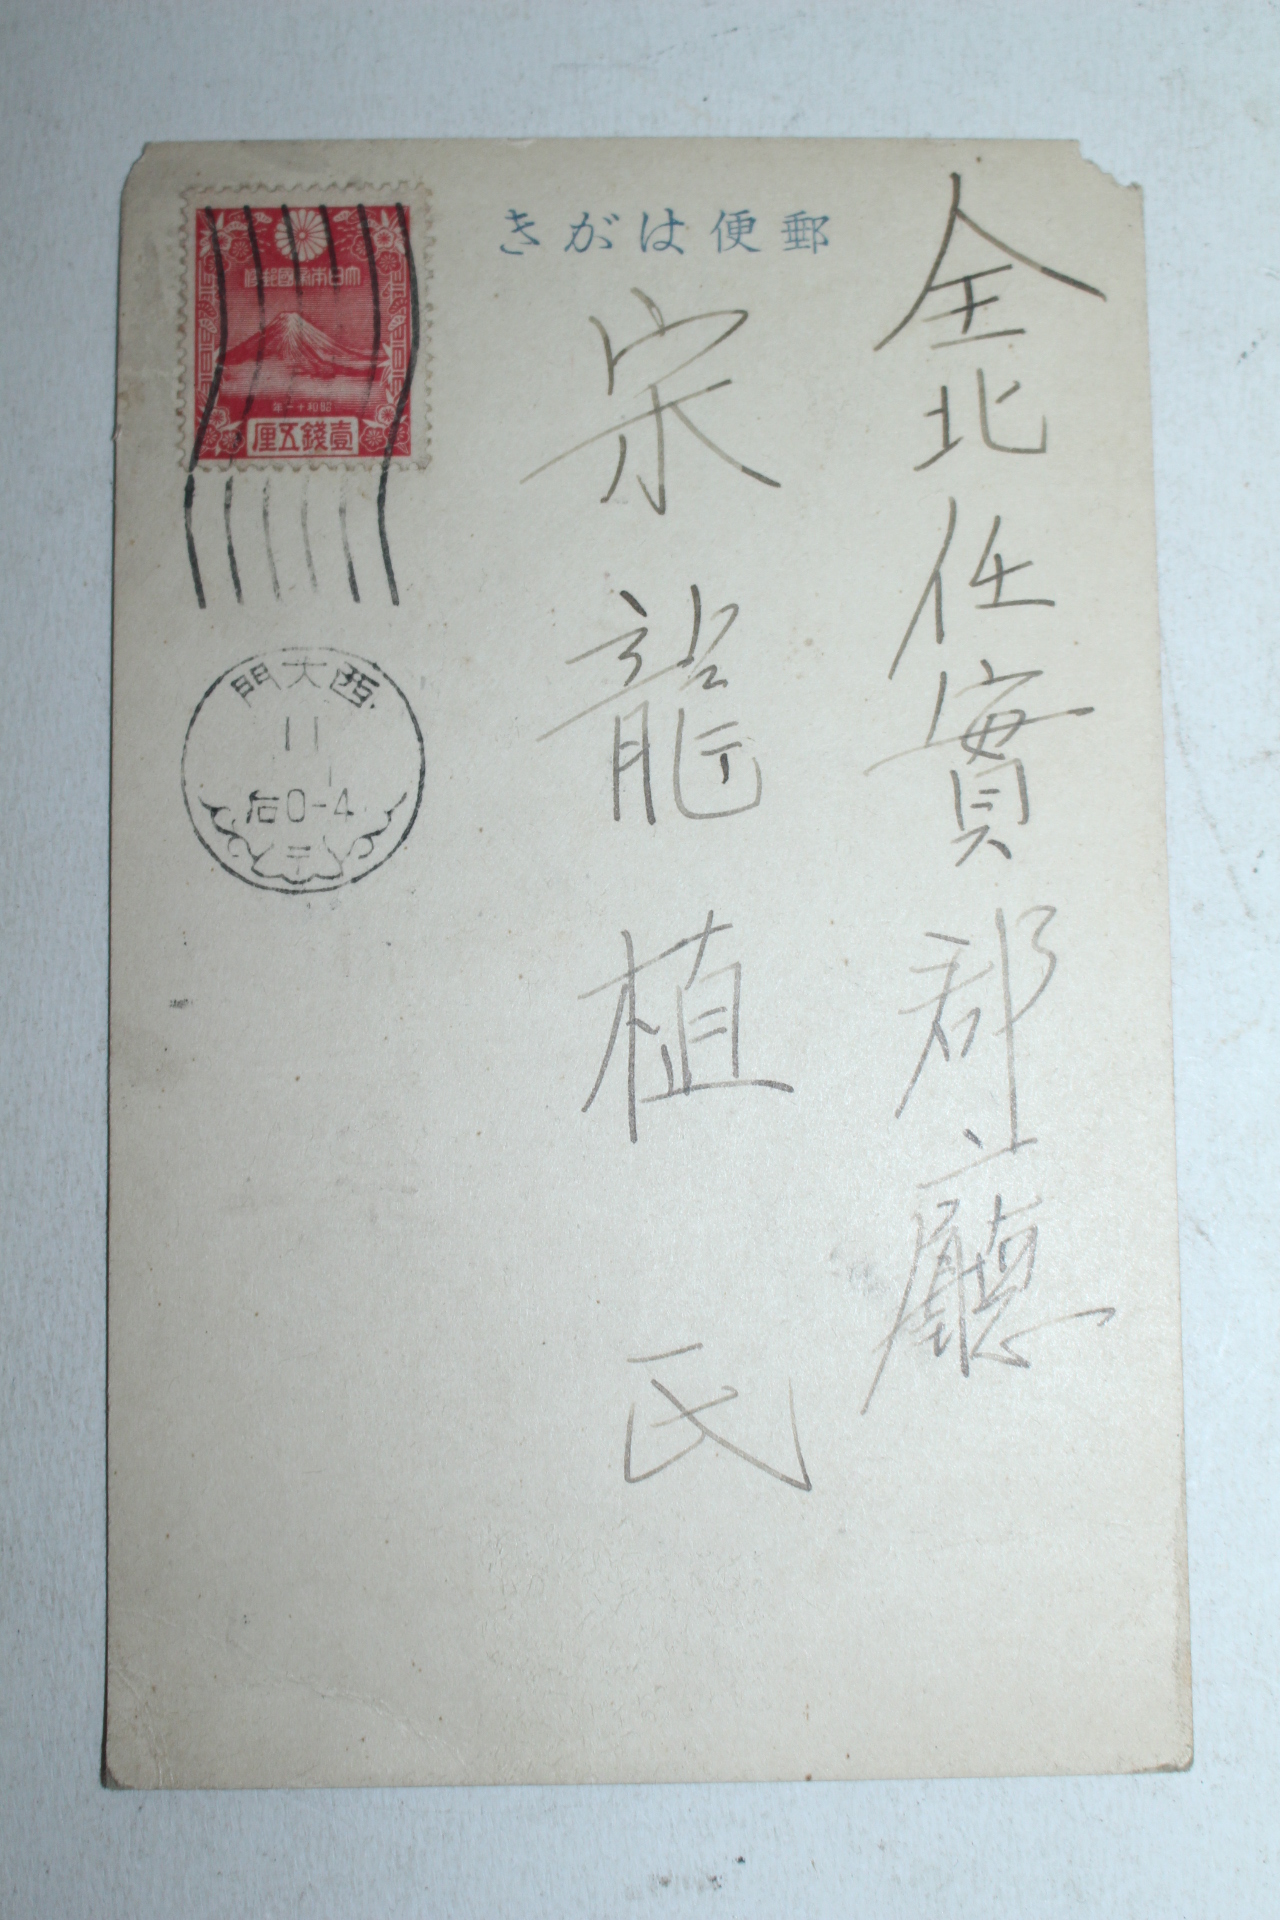 郵便はがき
全北任實郡廳
宋龍植 氏
大日本帝國郵便
昭和十一年
壹錢五厘
西大門
11
1
后0-4